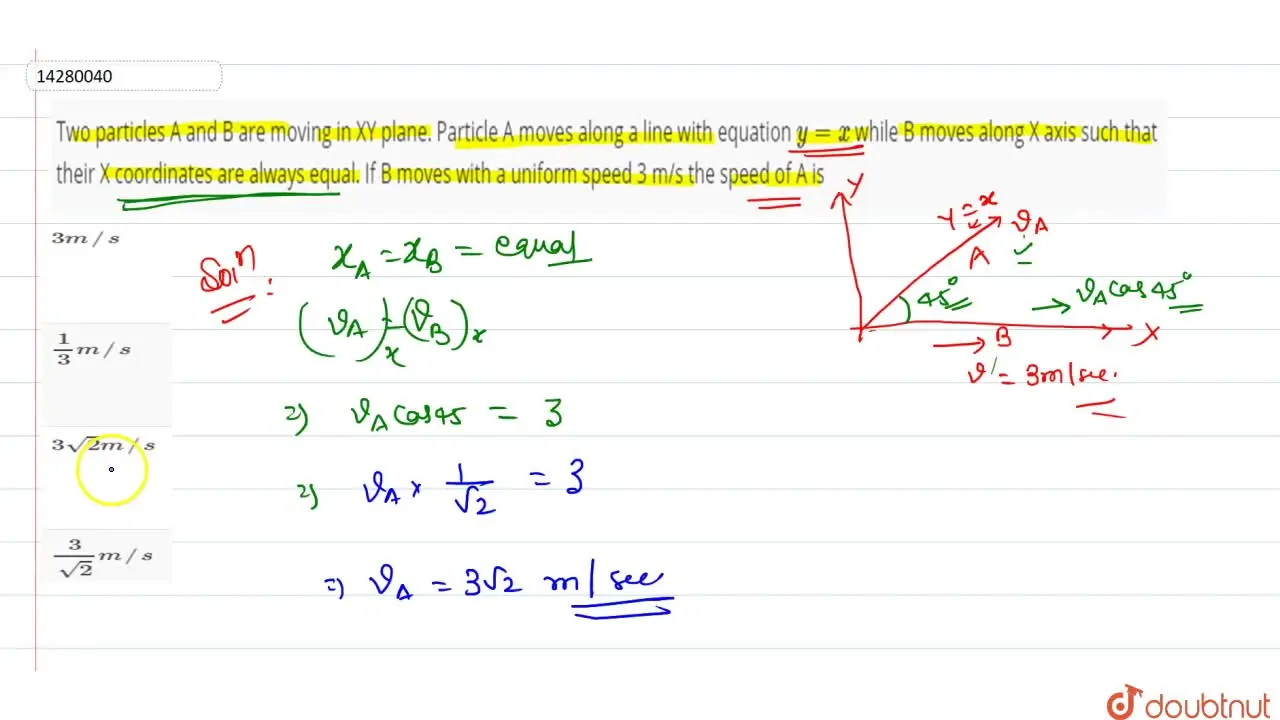 14280040
Two particles A and B are moving in XY plane. Particle A moves along a line with equation y = x while B moves along X axis such that
their X coordinates are always equal. If B moves with a uniform speed 3 m/s the speed of A is
3m / s
1/3 m / s
3√2m / s
3/√2 m / s
Soln :
x_A = x_B = equal
(v_A)_x = (v_B)_x
=> v_A cos45 = 3
=> v_A × 1/√2 = 3
=> v_A = 3√2 m/sec
Y
Y = x
v_A
A
45°
→ v_A cos45°
X
→ B
v = 3m/sec.
doubtnut